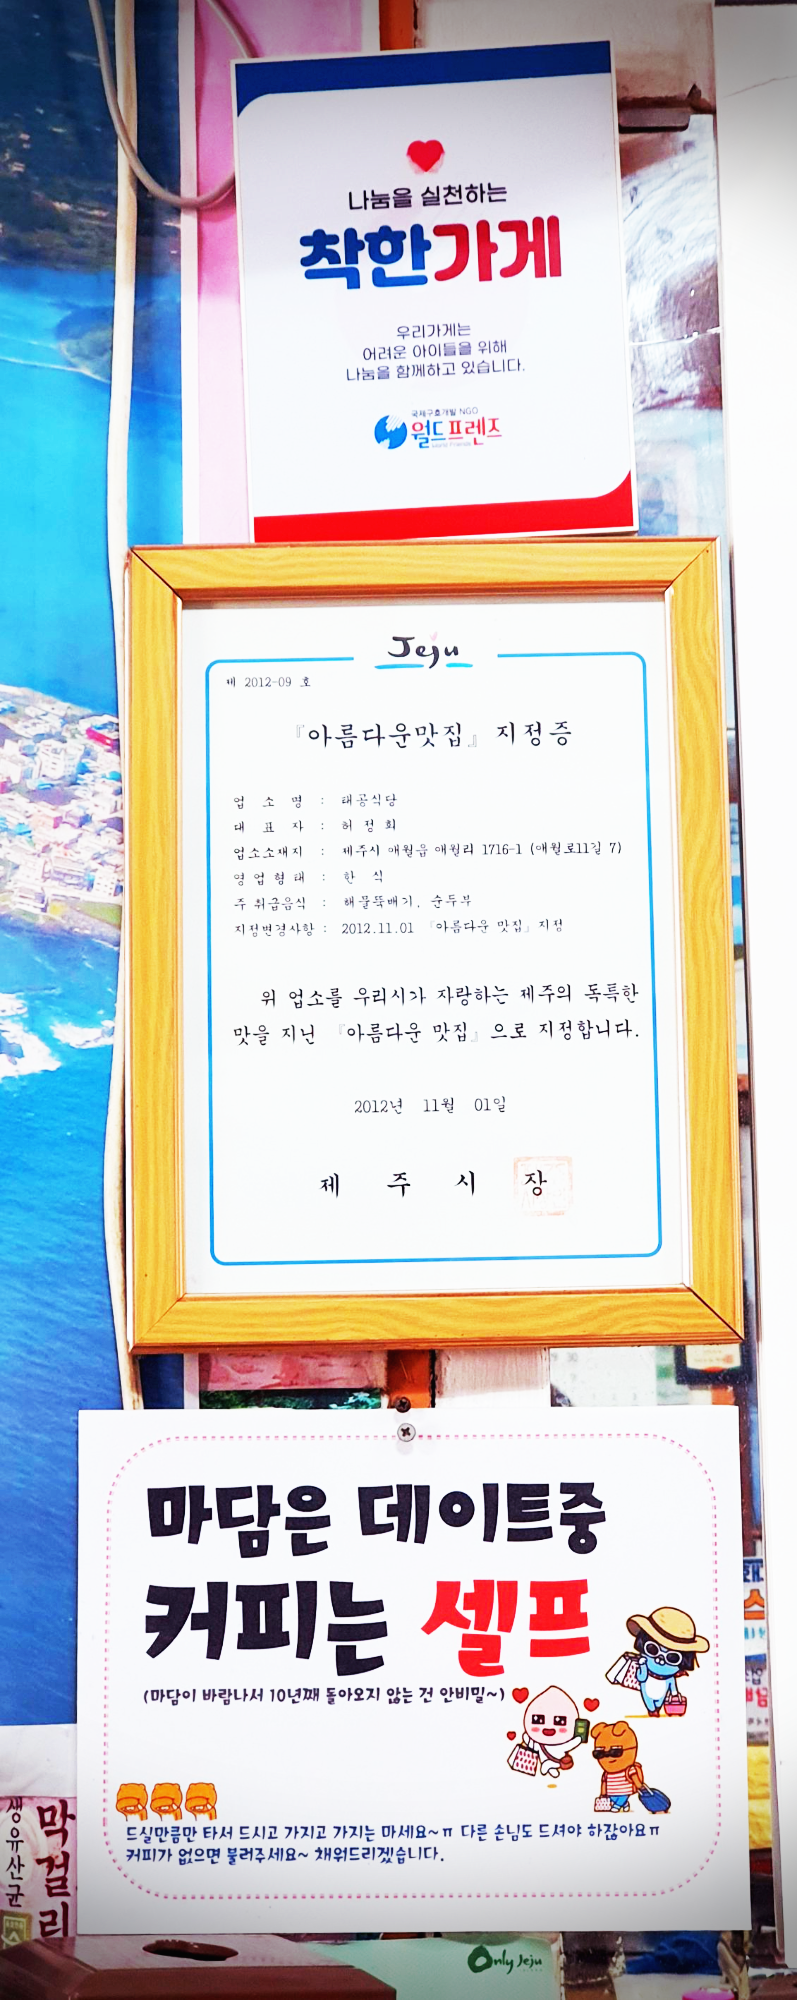 나눔을 실천하는
착한가게
우리가게는
어려운 아이들을 위해
나눔을 함께하고 있습니다.
국제구호개발 NGO
월드프렌즈
Jeju
제 2012-09 호
『아름다운맛집』 지정증
업 소 명 : 태공식당
대 표 자 : 허 정 회
업소소재지 : 제주시 애월읍 애월리 1716-1 (애월로11길 7)
영업형태 : 한 식
주취급음식 : 해물뚝배기, 순두부
지정변경사항 : 2012.11.01 『아름다운 맛집』 지정
위 업소를 우리시가 자랑하는 제주의 독특한
맛을 지닌 『아름다운 맛집』으로 지정합니다.
2012년 11월 01일
제 주 시 장
마담은 데이트중
커피는 셀프
(마담이 바람나서 10년째 돌아오지 않는 건 안비밀~)
드실만큼만 타서 드시고 가지고 가지는 마세요~ㅠ 다른 손님도 드셔야 하잖아요ㅠ
커피가 없으면 불러주세요~ 채워드리겠습니다.
생유산균
막걸리
Only Jeju